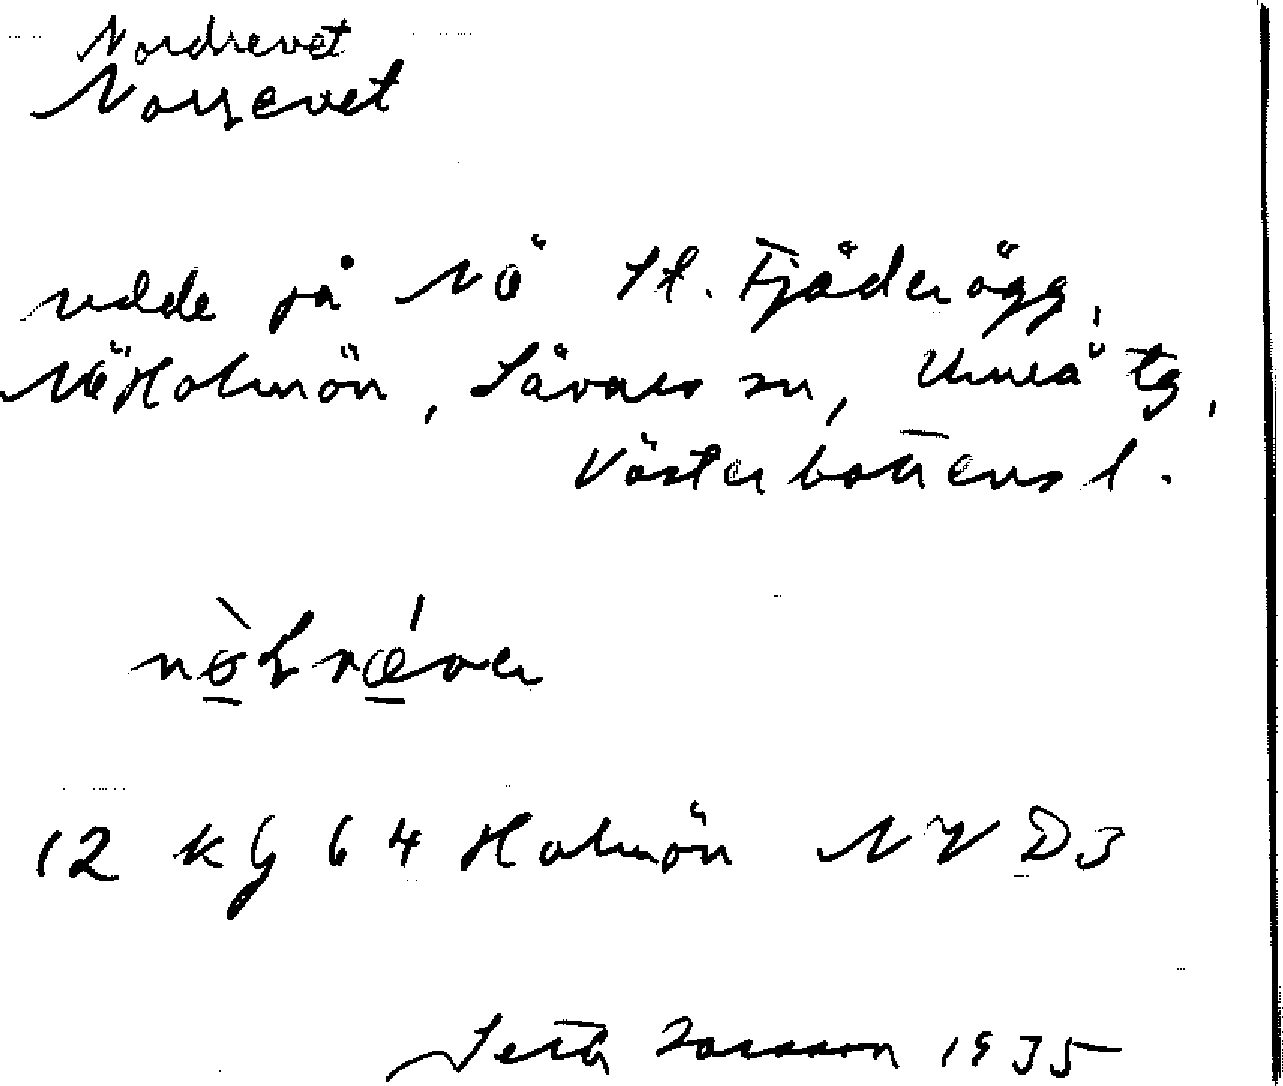 Nordrevet
Norrevet
udde på NÖ St. Fjäderägg,
NÖ Holmön, Sävars sn, Umeå tg,
Västerbottens l.
12 Kg 64 Holmön NV D3
Seth 1935